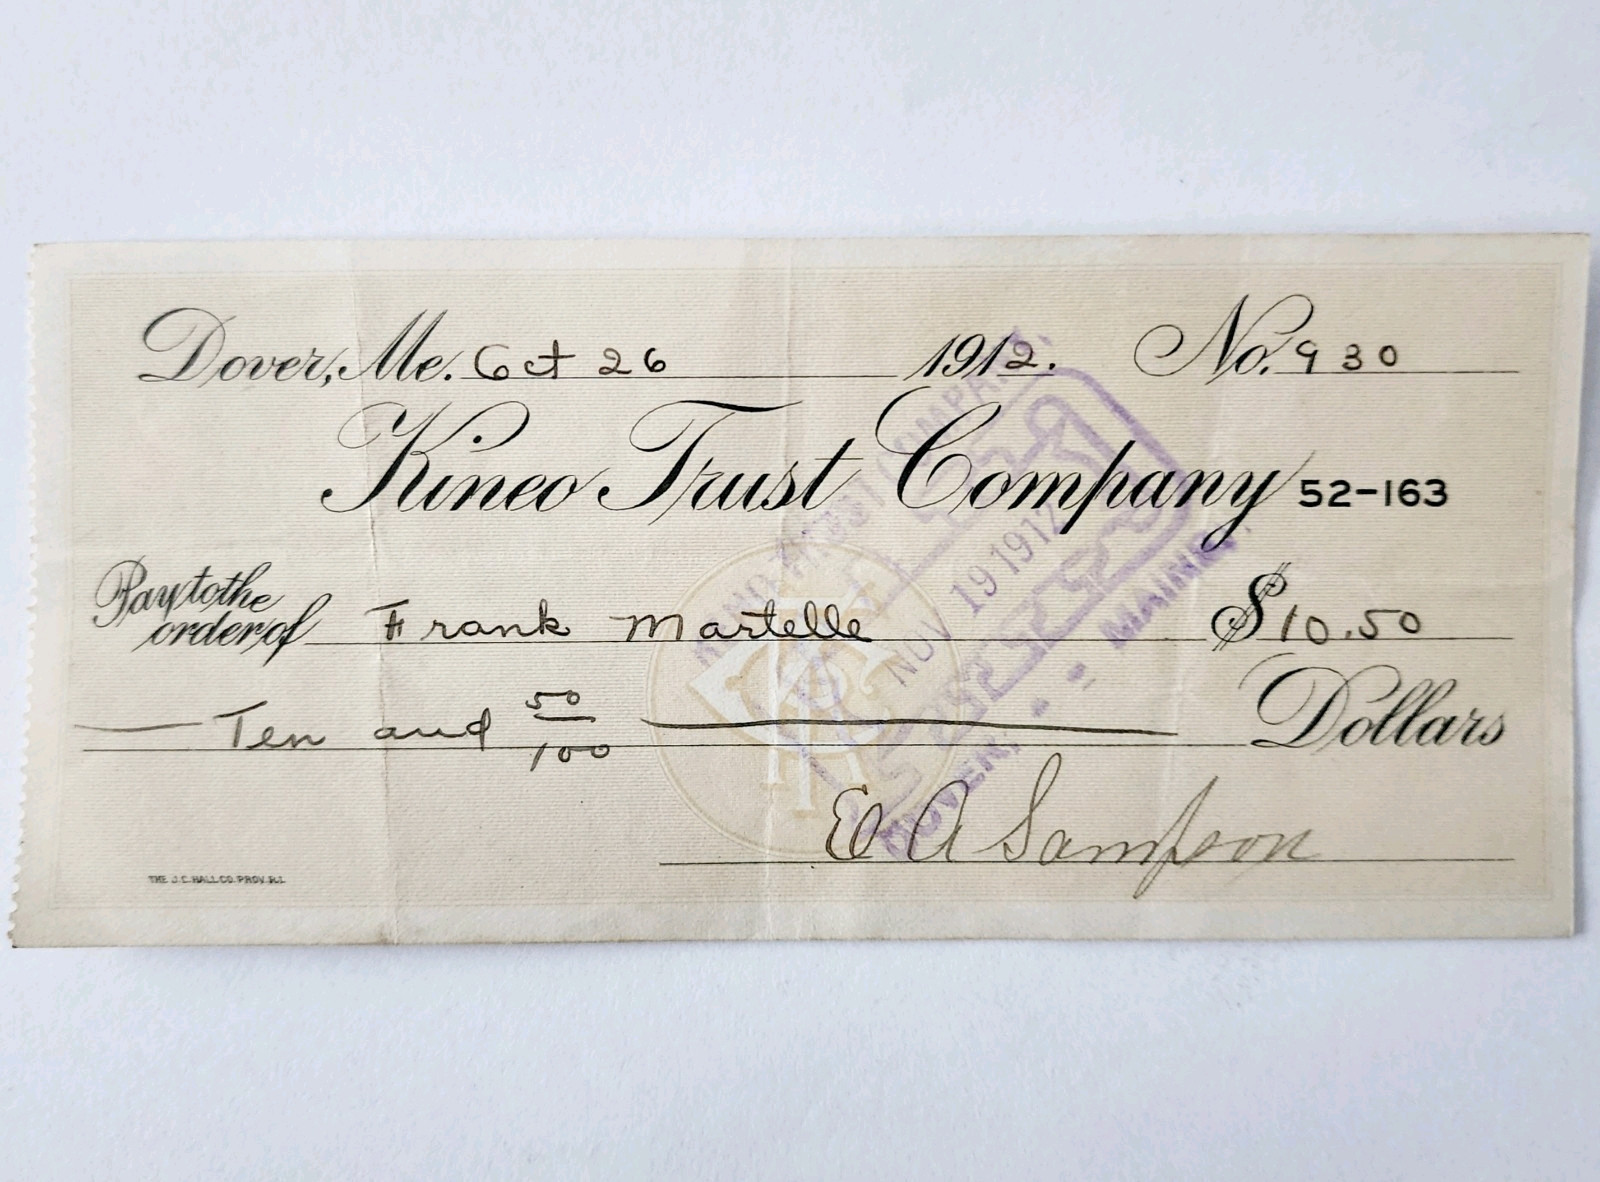 Dover, Me. Oct 26 1912. No. 930
Kineo Trust Company 52-163
Pay to the
order of Frank Martelle $10.50
Ten and 50/100 Dollars
E A Sampson
THE J.C. HALL CO. PROV. R.I.
KINEO TRUST COMPANY.
PAID
NOV 19 1912
DOVER, MAINE.